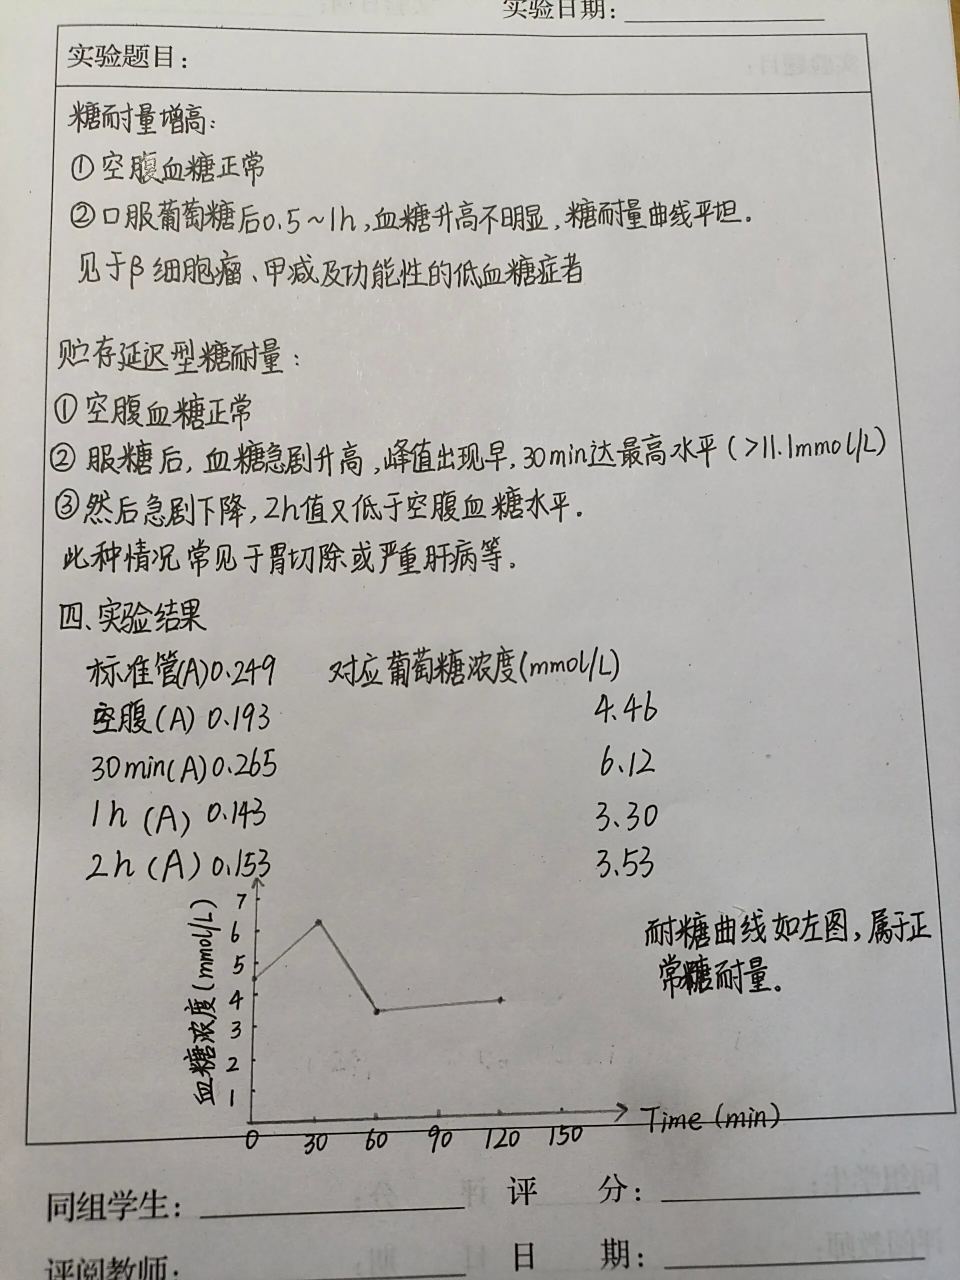 实验日期:
实验题目:
糖耐量增高:
①空腹血糖正常
②口服葡萄糖后0.5~1h,血糖升高不明显,糖耐量曲线平坦.
见于β细胞瘤、甲减及功能性的低血糖症者
贮存延迟型糖耐量:
①空腹血糖正常
②服糖后,血糖急剧升高,峰值出现早,30min达最高水平(>11.1mmol/L)
③然后急剧下降,2h值又低于空腹血糖水平.
此种情况常见于胃切除或严重肝病等.
四、实验结果
标准管(A)0.249 对应葡萄糖浓度(mmol/L)
空腹(A) 0.193 4.46
30min(A)0.265 6.12
1h (A) 0.143 3.30
2h (A) 0.153 3.53
耐糖曲线如左图,属于正
常糖耐量.
血糖浓度(mmol/L)
7
6
5
4
3
2
1
0 30 60 90 120 150
Time (min)
同组学生: 评 分:
评阅教师: 日 期: